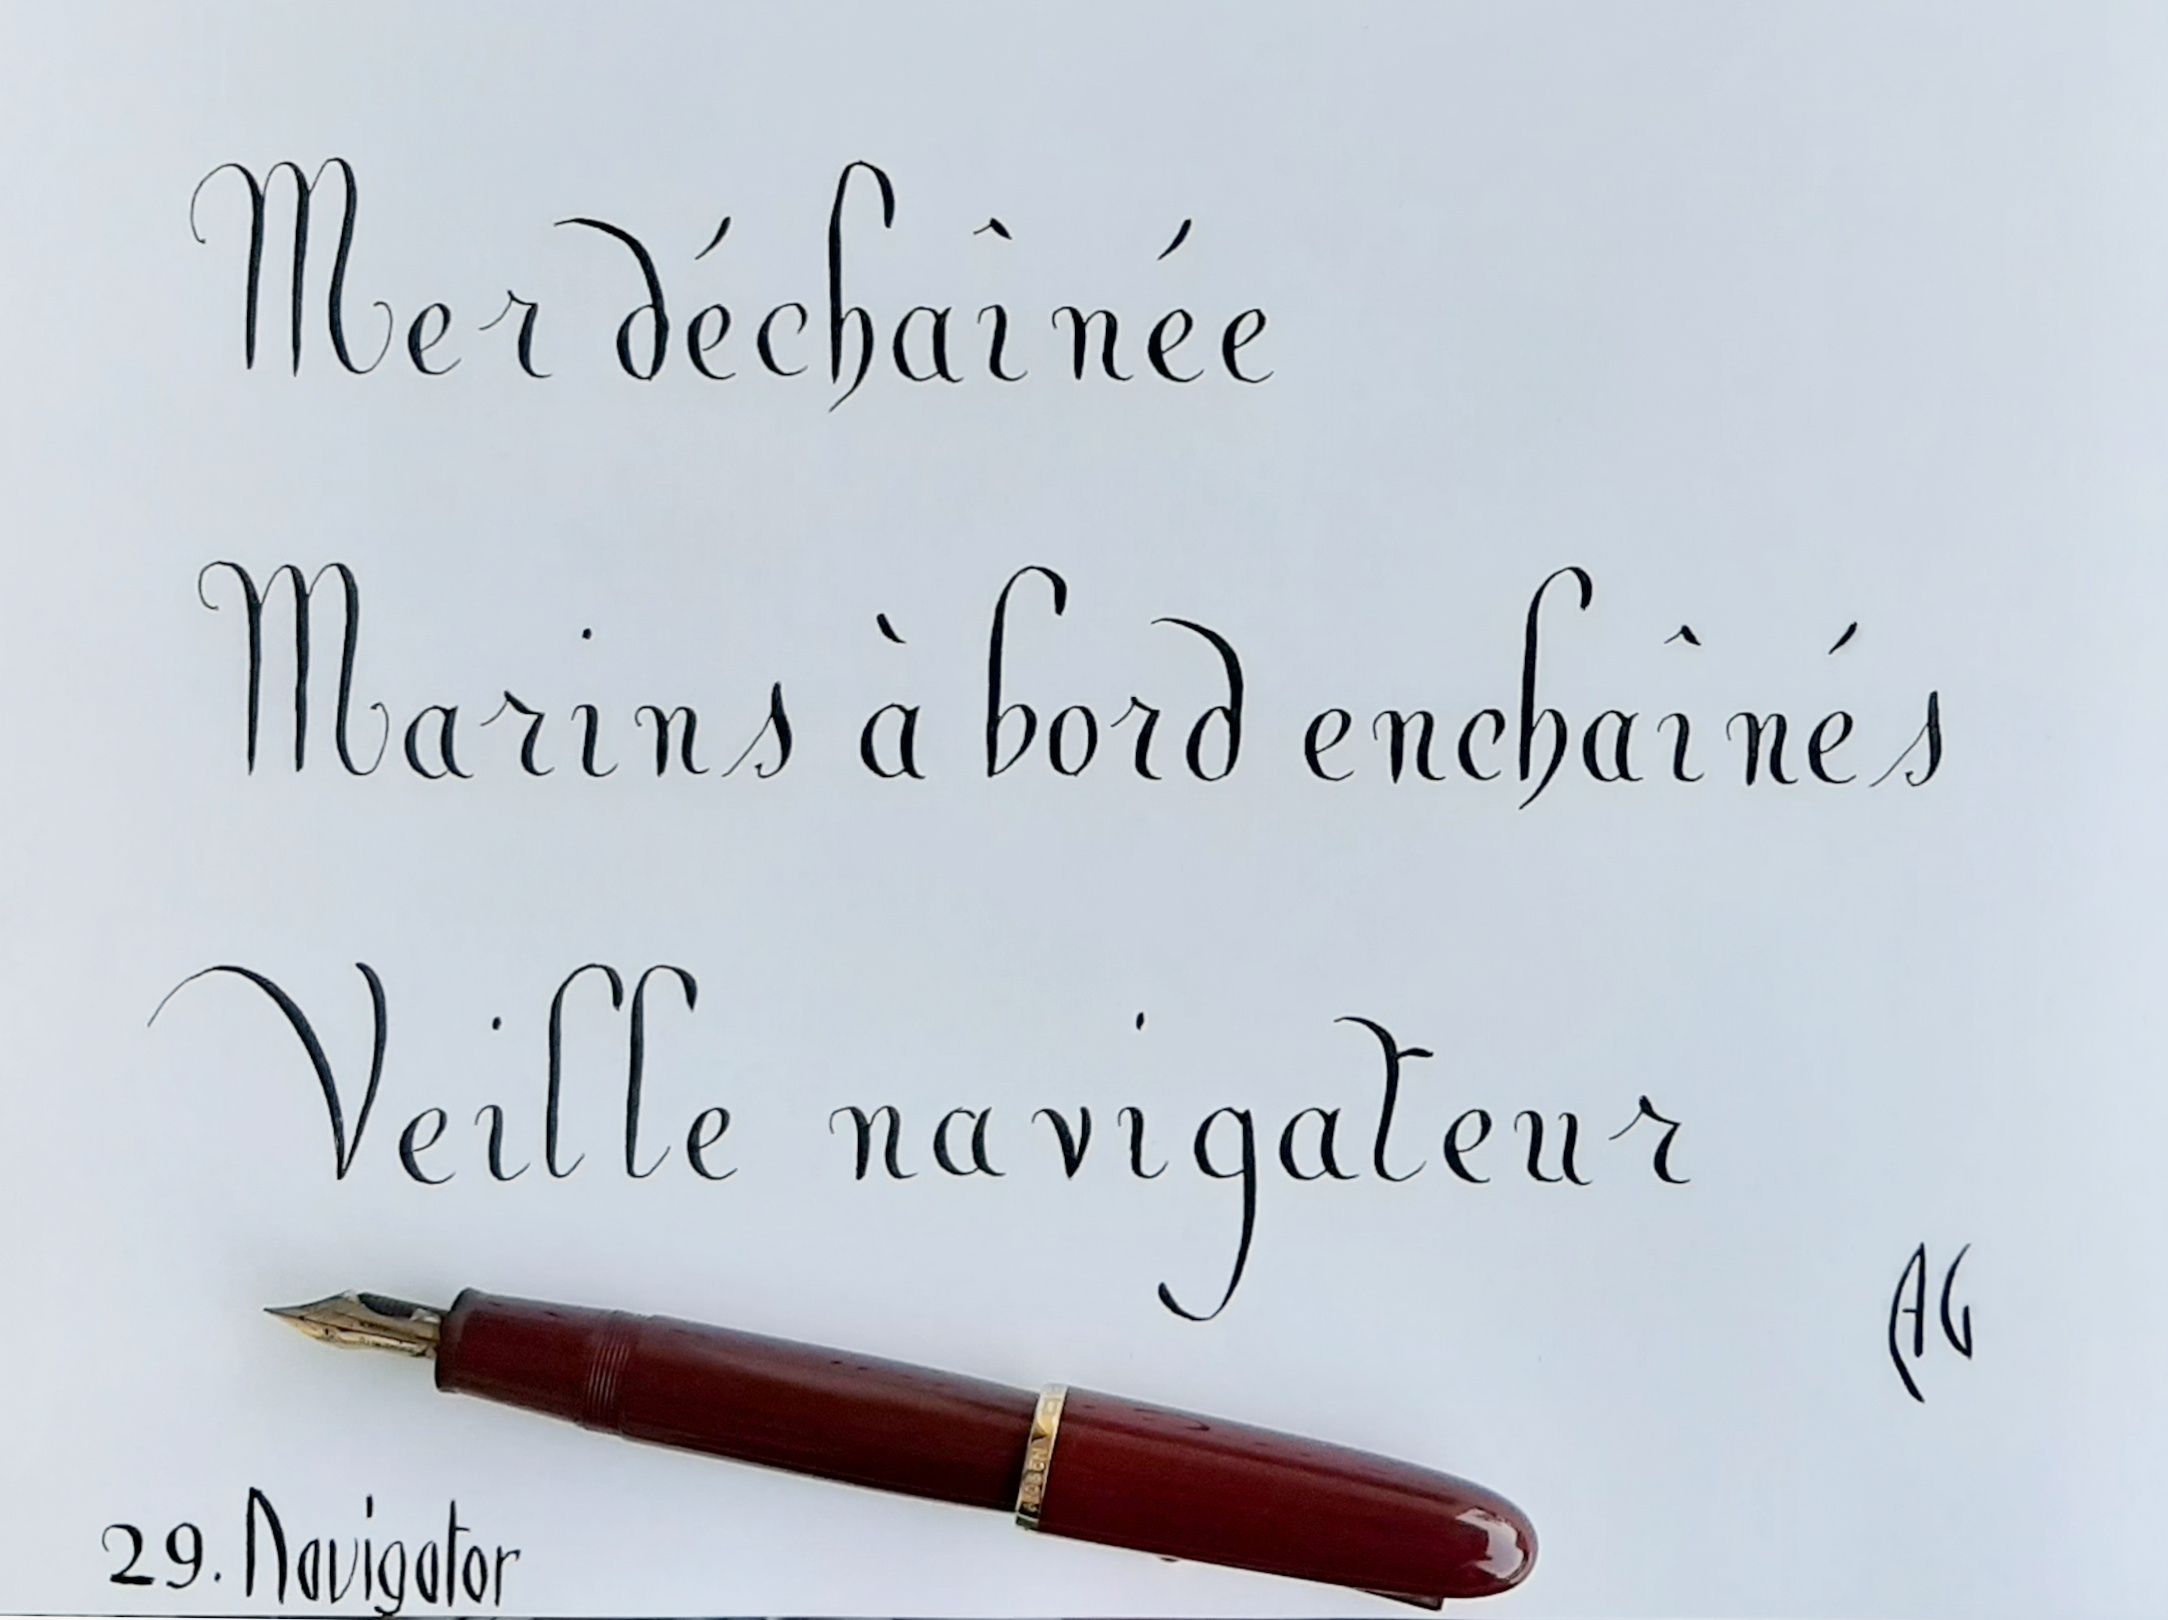 Mer déchaînée
Marins à bord enchaînés
Veille navigateur
AG
29. Navigator